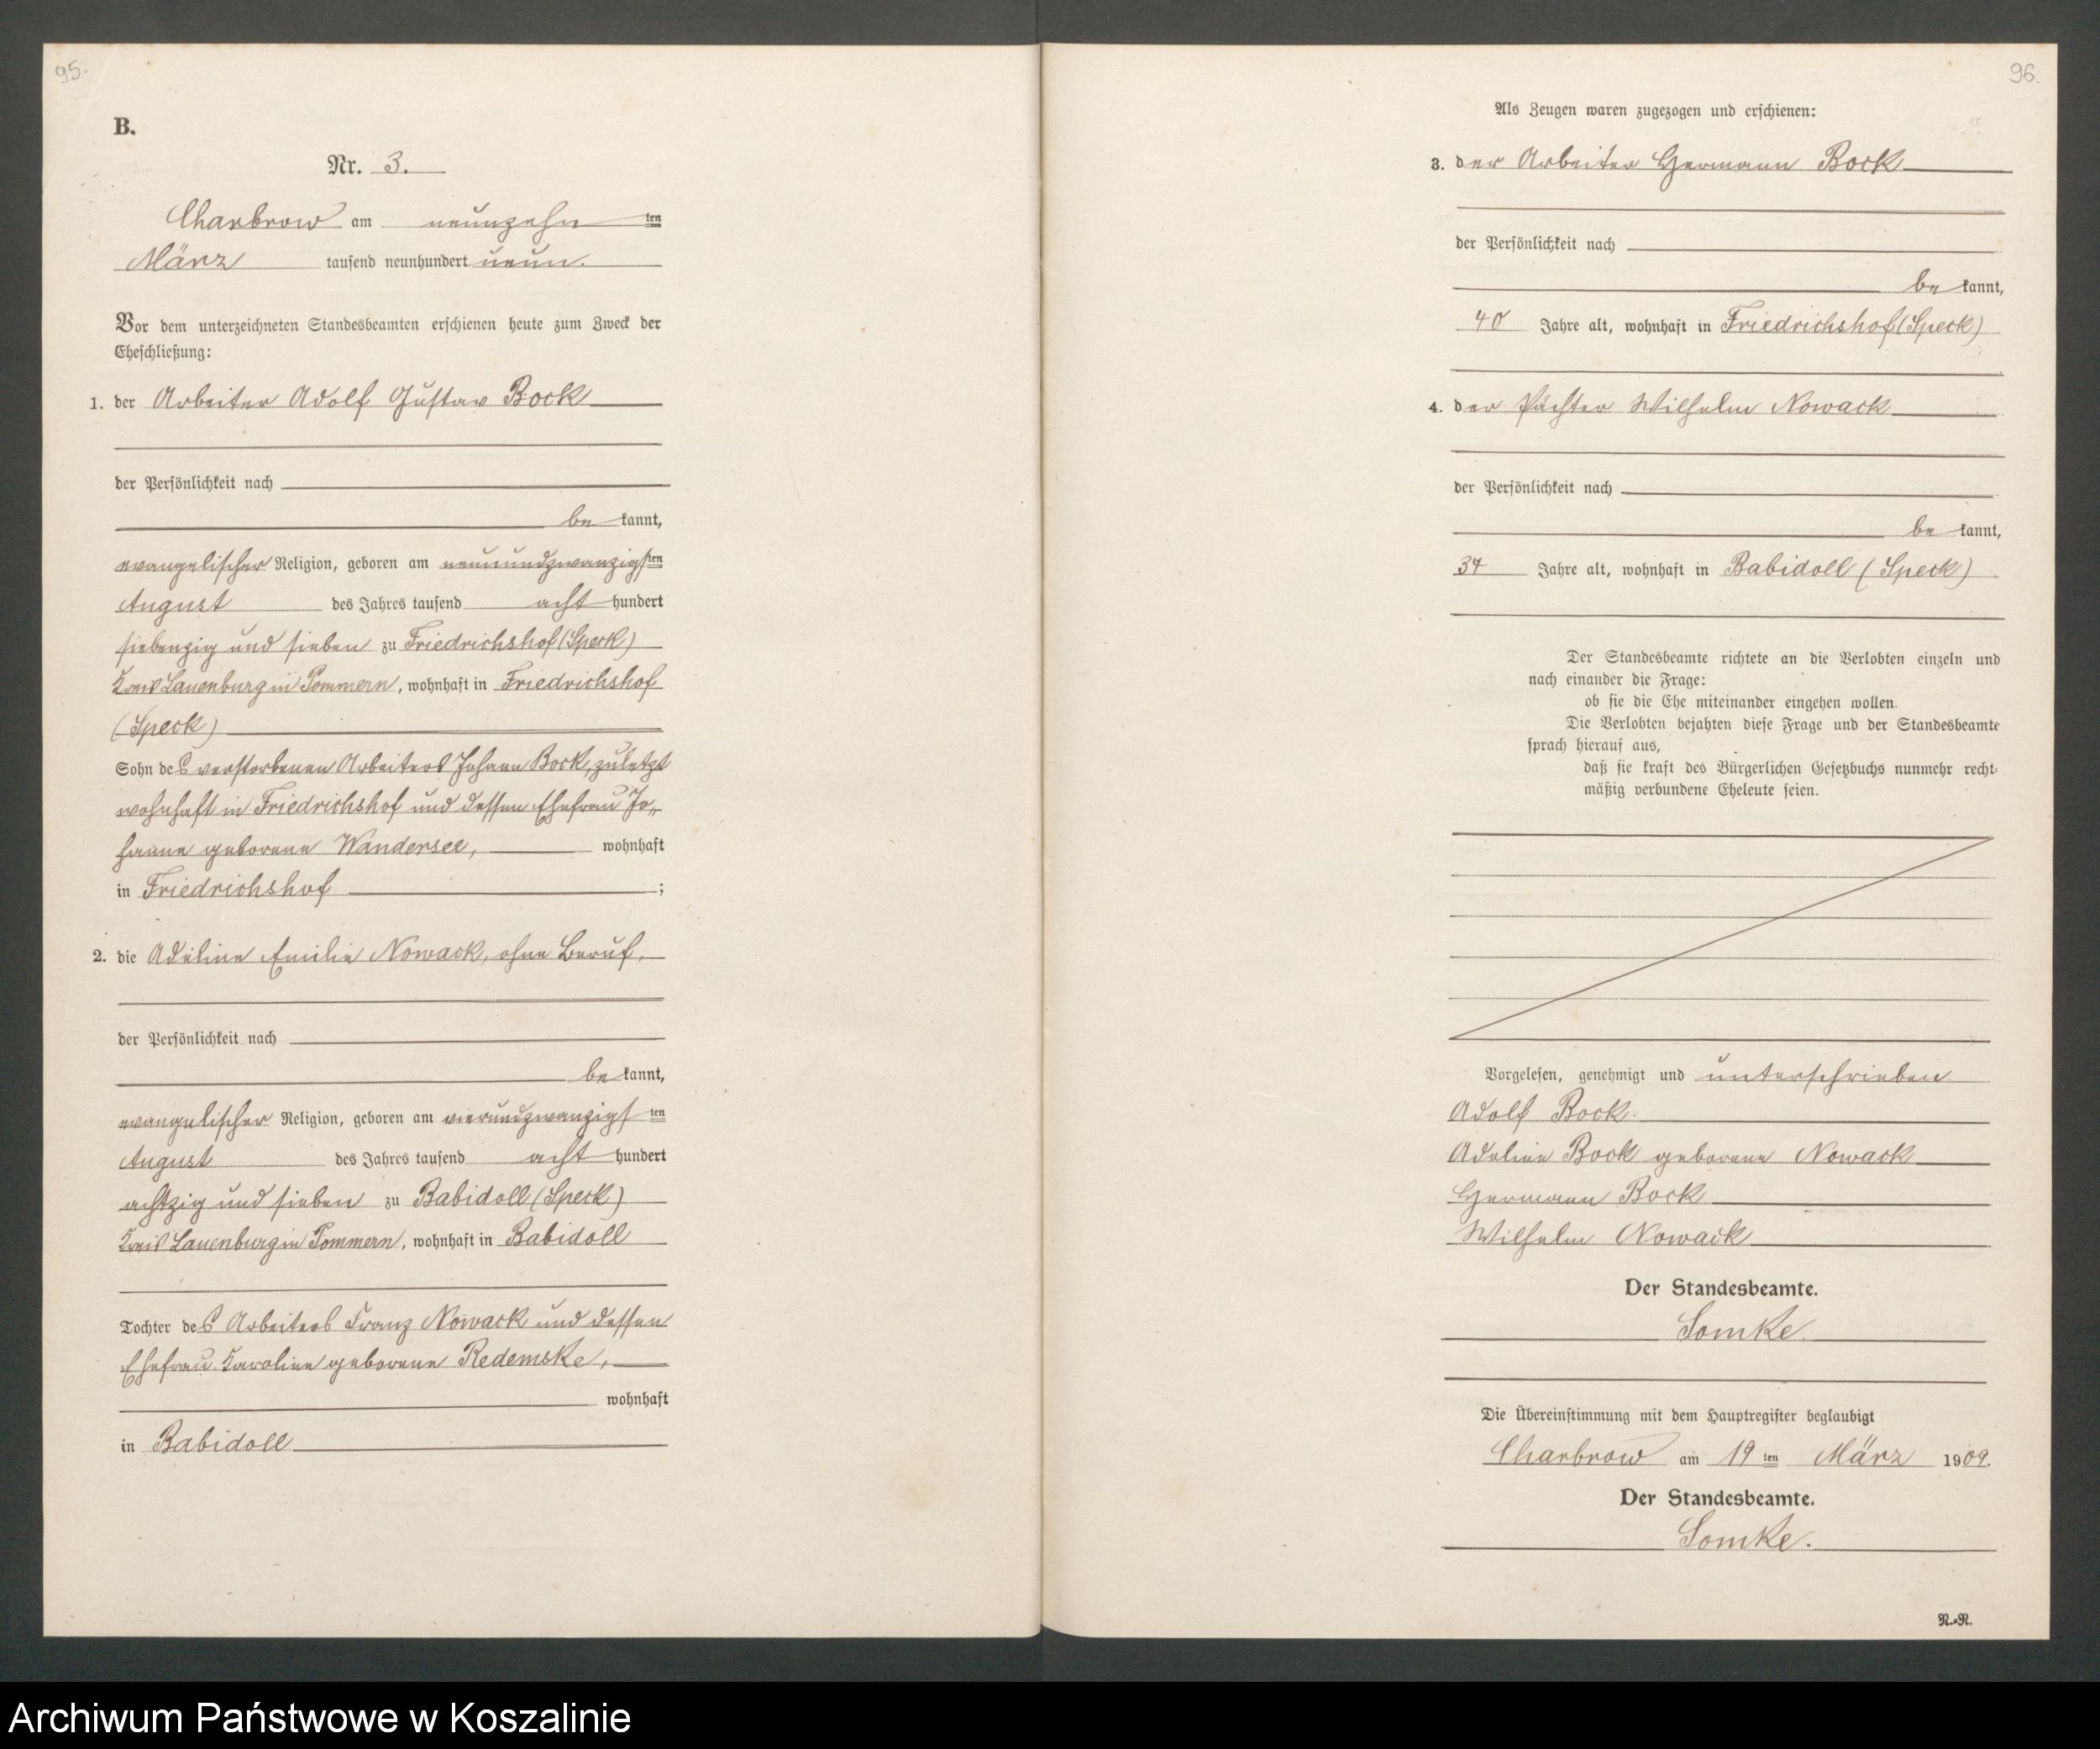 95.
B.
Nr. 3.
Charbrow am neunzehn ten
März tausend neunhundert neun.
Vor dem unterzeichneten Standesbeamten erschienen heute zum Zweck der
Eheschließung:
1. der Arbeiter Adolf Gustav Bock
der Persönlichkeit nach
be kannt,
evangelischer Religion, geboren am neunundzwanzigsten
August des Jahres tausend acht hundert
siebenzig und sieben zu Friedrichshof (Speck)
Kreis Lauenburg in Pommern, wohnhaft in Friedrichshof
(Speck)
Sohn des verstorbenen Arbeiters Johann Bock, zuletzt
wohnhaft in Friedrichshof und dessen Ehefrau Jo-
hanne geborene Wandersee, wohnhaft
in Friedrichshof ;
2. die Adeline Emilie Nowack, ohne Beruf,
der Persönlichkeit nach
be kannt,
evangelischer Religion, geboren am vierundzwanzigsten
August des Jahres tausend acht hundert
achtzig und sieben zu Babidoll (Speck)
Kreis Lauenburg in Pommern, wohnhaft in Babidoll
Tochter des Arbeiters Franz Nowack und dessen
Ehefrau Karoline geborene Redemske,
wohnhaft
in Babidoll
96.
Als Zeugen waren zugezogen und erschienen:
3. der Arbeiter Hermann Bock
der Persönlichkeit nach
be kannt,
40 Jahre alt, wohnhaft in Friedrichshof (Speck)
4. der Pächter Wilhelm Nowack
der Persönlichkeit nach
be kannt,
34 Jahre alt, wohnhaft in Babidoll (Speck)
Der Standesbeamte richtete an die Verlobten einzeln und
nach einander die Frage:
ob sie die Ehe miteinander eingehen wollen.
Die Verlobten bejahten diese Frage und der Standesbeamte
sprach hierauf aus,
daß sie kraft des Bürgerlichen Gesetzbuchs nunmehr recht-
mäßig verbundene Eheleute seien.
Vorgelesen, genehmigt und unterschrieben
Adolf Bock.
Adeline Bock geborene Nowack
Hermann Bock
Wilhelm Nowack
Der Standesbeamte.
Somke.
Die Übereinstimmung mit dem Hauptregister beglaubigt
Charbrow am 19 ten März 1909.
Der Standesbeamte.
Somke.
N.-N.
Archiwum Państwowe w Koszalinie